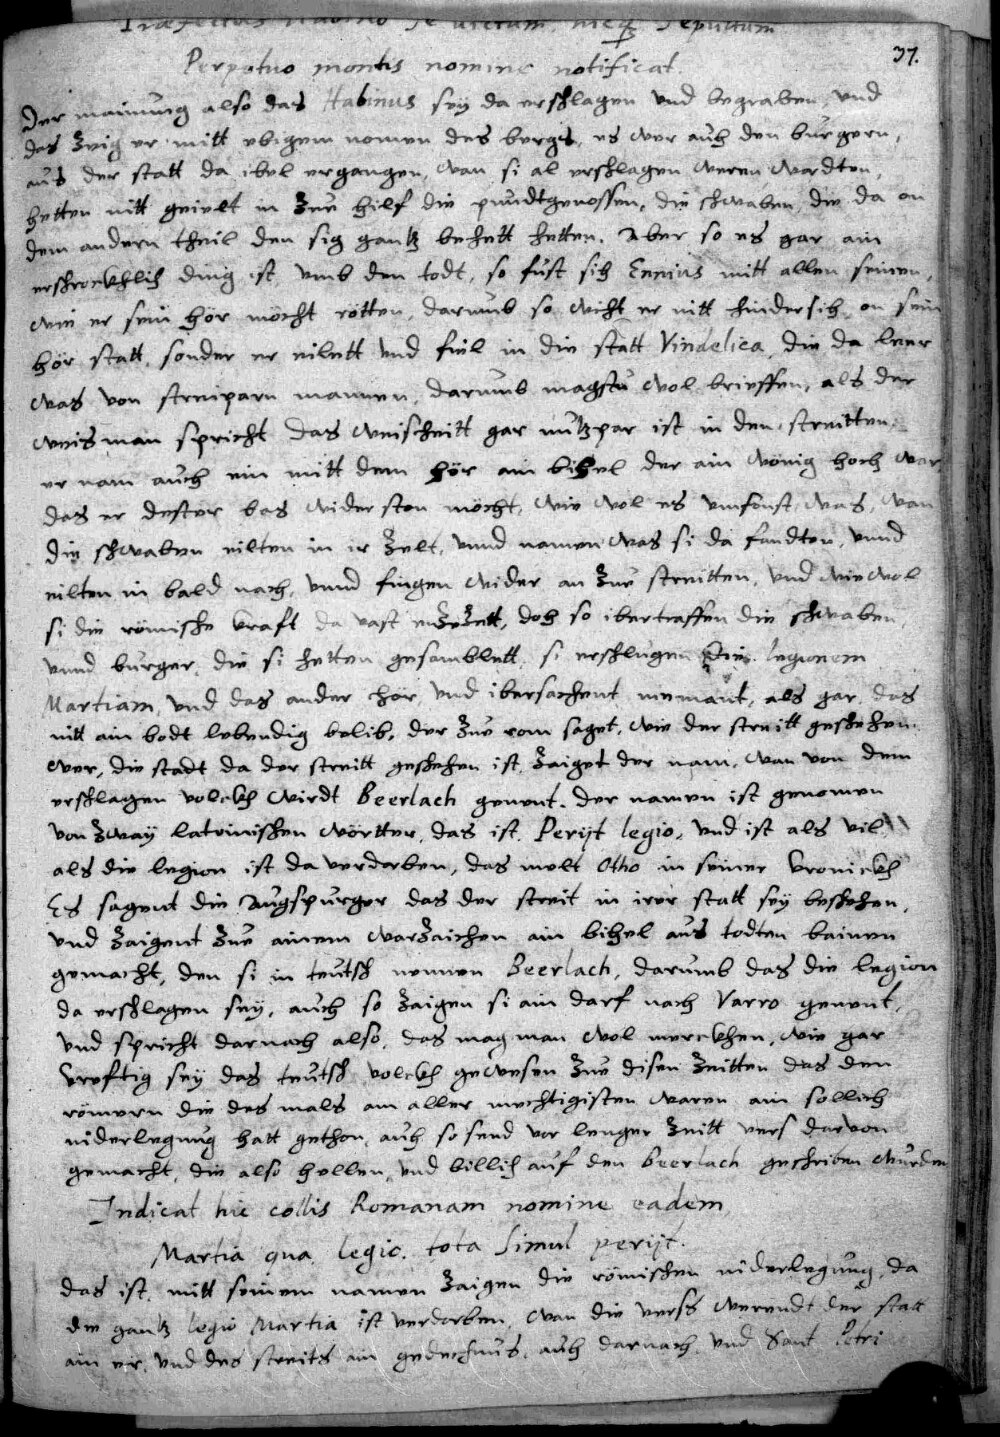 Praefectus Habino se dicetum hicq sepultum
37.
Perpetuo montis nomine notificat.
Der mainung also das Habinus seÿ da erschlagen vnd begraben, vnd
das zeig er mitt ebigem nomen des bergs, es wer auch den burgern,
aus der statt da ibel ergangen, wan si al erschlagen weren wordten,
hetten nitt geeilt in zue hilf die pundtgenossen, die schwaben, die da on
dem andern theil den sig gantz behebt hetten. Aber so es gar ain
erschrockhlich ding ist vmb den todt, so fúst sich Ennius mitt allen seinen,
wie er sein hör möcht rötten, darumb so wicht er nitt hindersich, on sein
hör statt, sonder er eilett vnd fiel in die statt Vindelica, die da leer
was von streiparn mannen, darumb magstu wol brieffen, als der
weis man spricht das weischeitt gar nutzpar ist in den streitten.
er nam auch ein mitt dem hör ain bihel der ain wönig hoch war
das er dester bas widerston möcht, wie wol es vmsonst was, wan
die schwaben eilten in ir zelt, vnnd namen was si da fandten, vnnd
eilten in bald nach, vnnd fingen wider an zue streitten, vnd wiewol
si die römische kraft da vast, doch so ibertraffen die schwaben
vnnd burger, die si hetten gesamblett, si erschlugen die legionem
Martiam, vnd das ander hör, vnd ibersachent niemant, als gar das
nitt ain bodt lebendig belib, der zue rom saget, wie der streitt geschehen
wer, die stadt da der streitt geschehen ist, zaiget der nam, wan von dem
erschlagen volckh wirdt Beerlach genent. der namen ist genomen
von zwaÿ lateinischen wörtter, das ist, Perijt legio, vnd ist als vil
als die legion ist da verdorben, das melt Otho in seiner kronickh
Es sagent die Augspurger das der streit in irer statt seÿ beschehen,
vnd zaigent zue ainem warzaichen ain bihel aus todten bainen
gemacht, den si in teutsch nennen Beerlach, darumb das die legion
da erschlagen seÿ, auch so zaigen si ain darf nach Varro genent,
vnd spricht darnach also, das mag man wol merckhen, wie gar
kreftig seÿ das teutsch volckh gewesen zue disen zeitten das den
römern die des mals am aller mechtigisten waren ain sollich
niderlegung hatt gethon, auch so send vor lenger zeitt vers darvon
gemacht, die also hellen, vnd billich auf den Beerlach geschriben wurden
Indicat hic collis Romanam nomine eadem
Martia qua legio. tota simul perijt.
das ist, mitt seinem namen zaigen die römischen niderlegung, da
die gantz legio Martia ist verdorben, wan die verss werendt der statt
ain eer, vnd des streits ain gedechnus, auch darnach, vnd Sant Petri